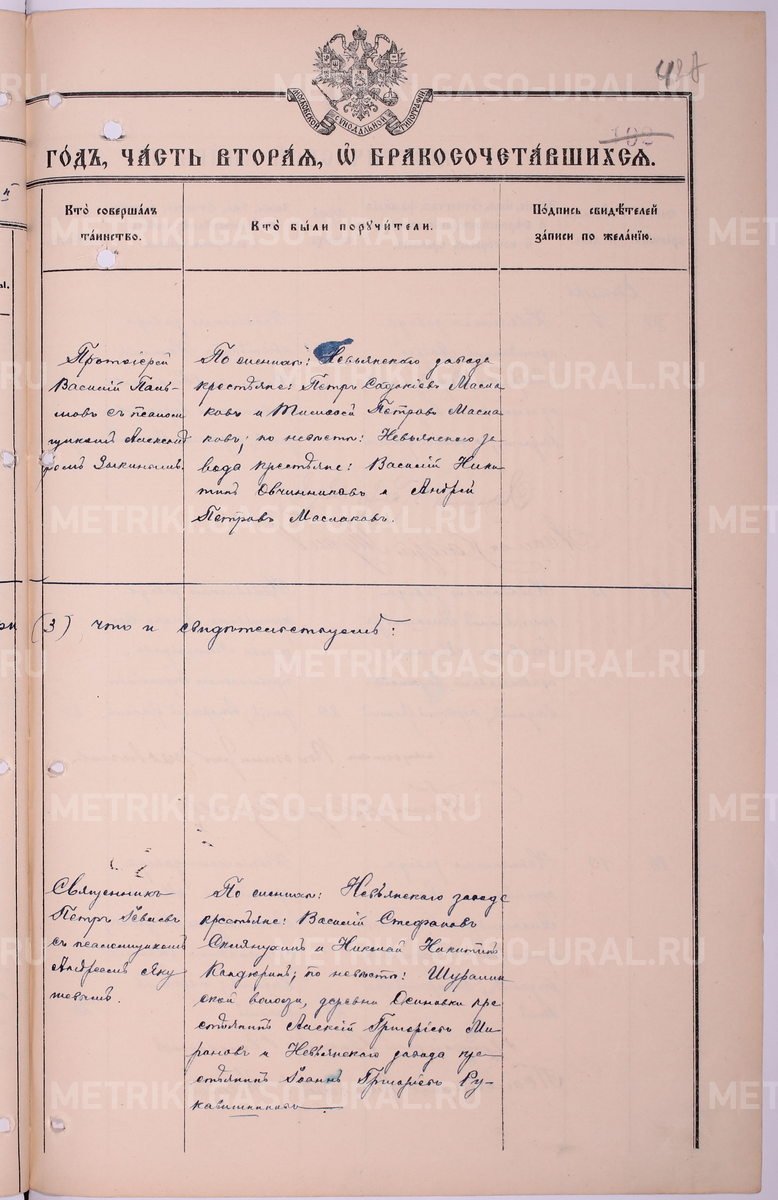 МОСКОВСКОЙ СѴНОДАЛЬНОЙ ТИПОГРАФІИ
ГОДЪ, ЧАСТЬ ВТОРАЯ, Ѡ БРАКОСОЧЕТАВШИХСЯ.
Кто совершалъ
таинство.
Кто были поручители.
Подпись свидѣтелей
записи по желанію.
Протоіерей
Василій
съ псалом
щикомъ Александ
ромъ
По женихѣ: Невьянскаго завода
крестьяне: Петръ Масла
ковъ и Тимофей Петровъ Масла
ковъ; по невѣстѣ: Невьянскаго за
вода крестьяне: Василій Ники
тинъ Овчинниковъ и Андрей
Петровъ Маслаковъ.
(3) что и свидѣтельствуемъ:
Священникъ
Петръ
съ псаломщикомъ
Андреемъ Яку
шевымъ.
По женихѣ: Невьянскаго завода
крестьяне: Василій Стефановъ
и Николай Никитинъ
по невѣстѣ: Шуралин
ской волости, деревни Осиновки кре
стьянинъ Алексій Григорьевъ Ми
роновъ и Невьянскаго завода кре
стьянинъ Іоаннъ Григорьевъ Ру-
кавишниковъ
METRIKI.GASO-URAL.RU